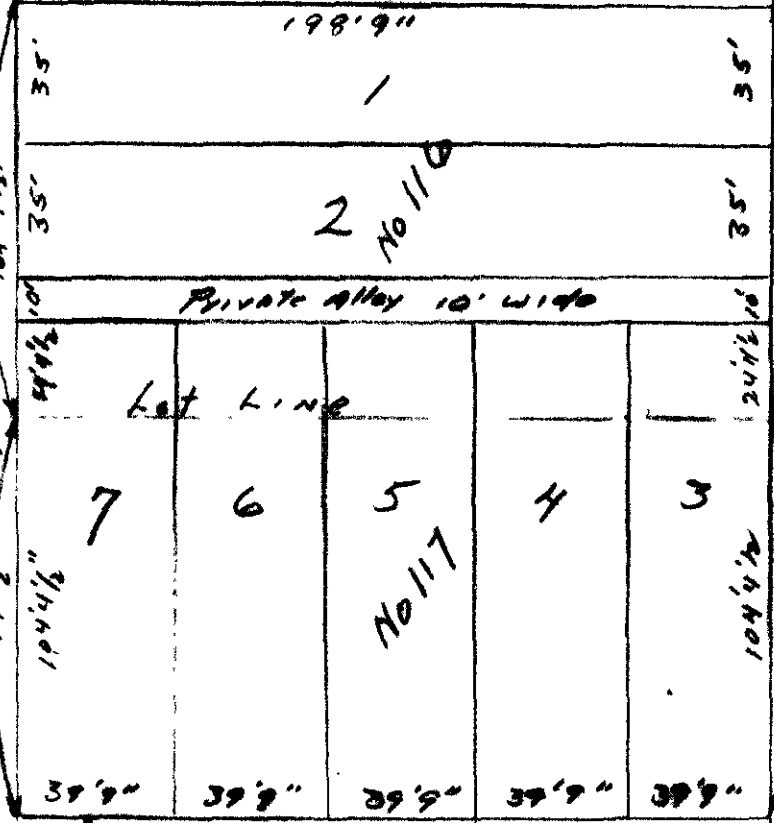 198'9"
35'
1
35'
35'
2
No 116
35'
10'
Private Alley 10' wide
10'
24'4½
Lot Line
7
6
5
4
3
No 117
104'4½"
104'4½
39'9"
39'9"
39'9"
39'9"
39'9"